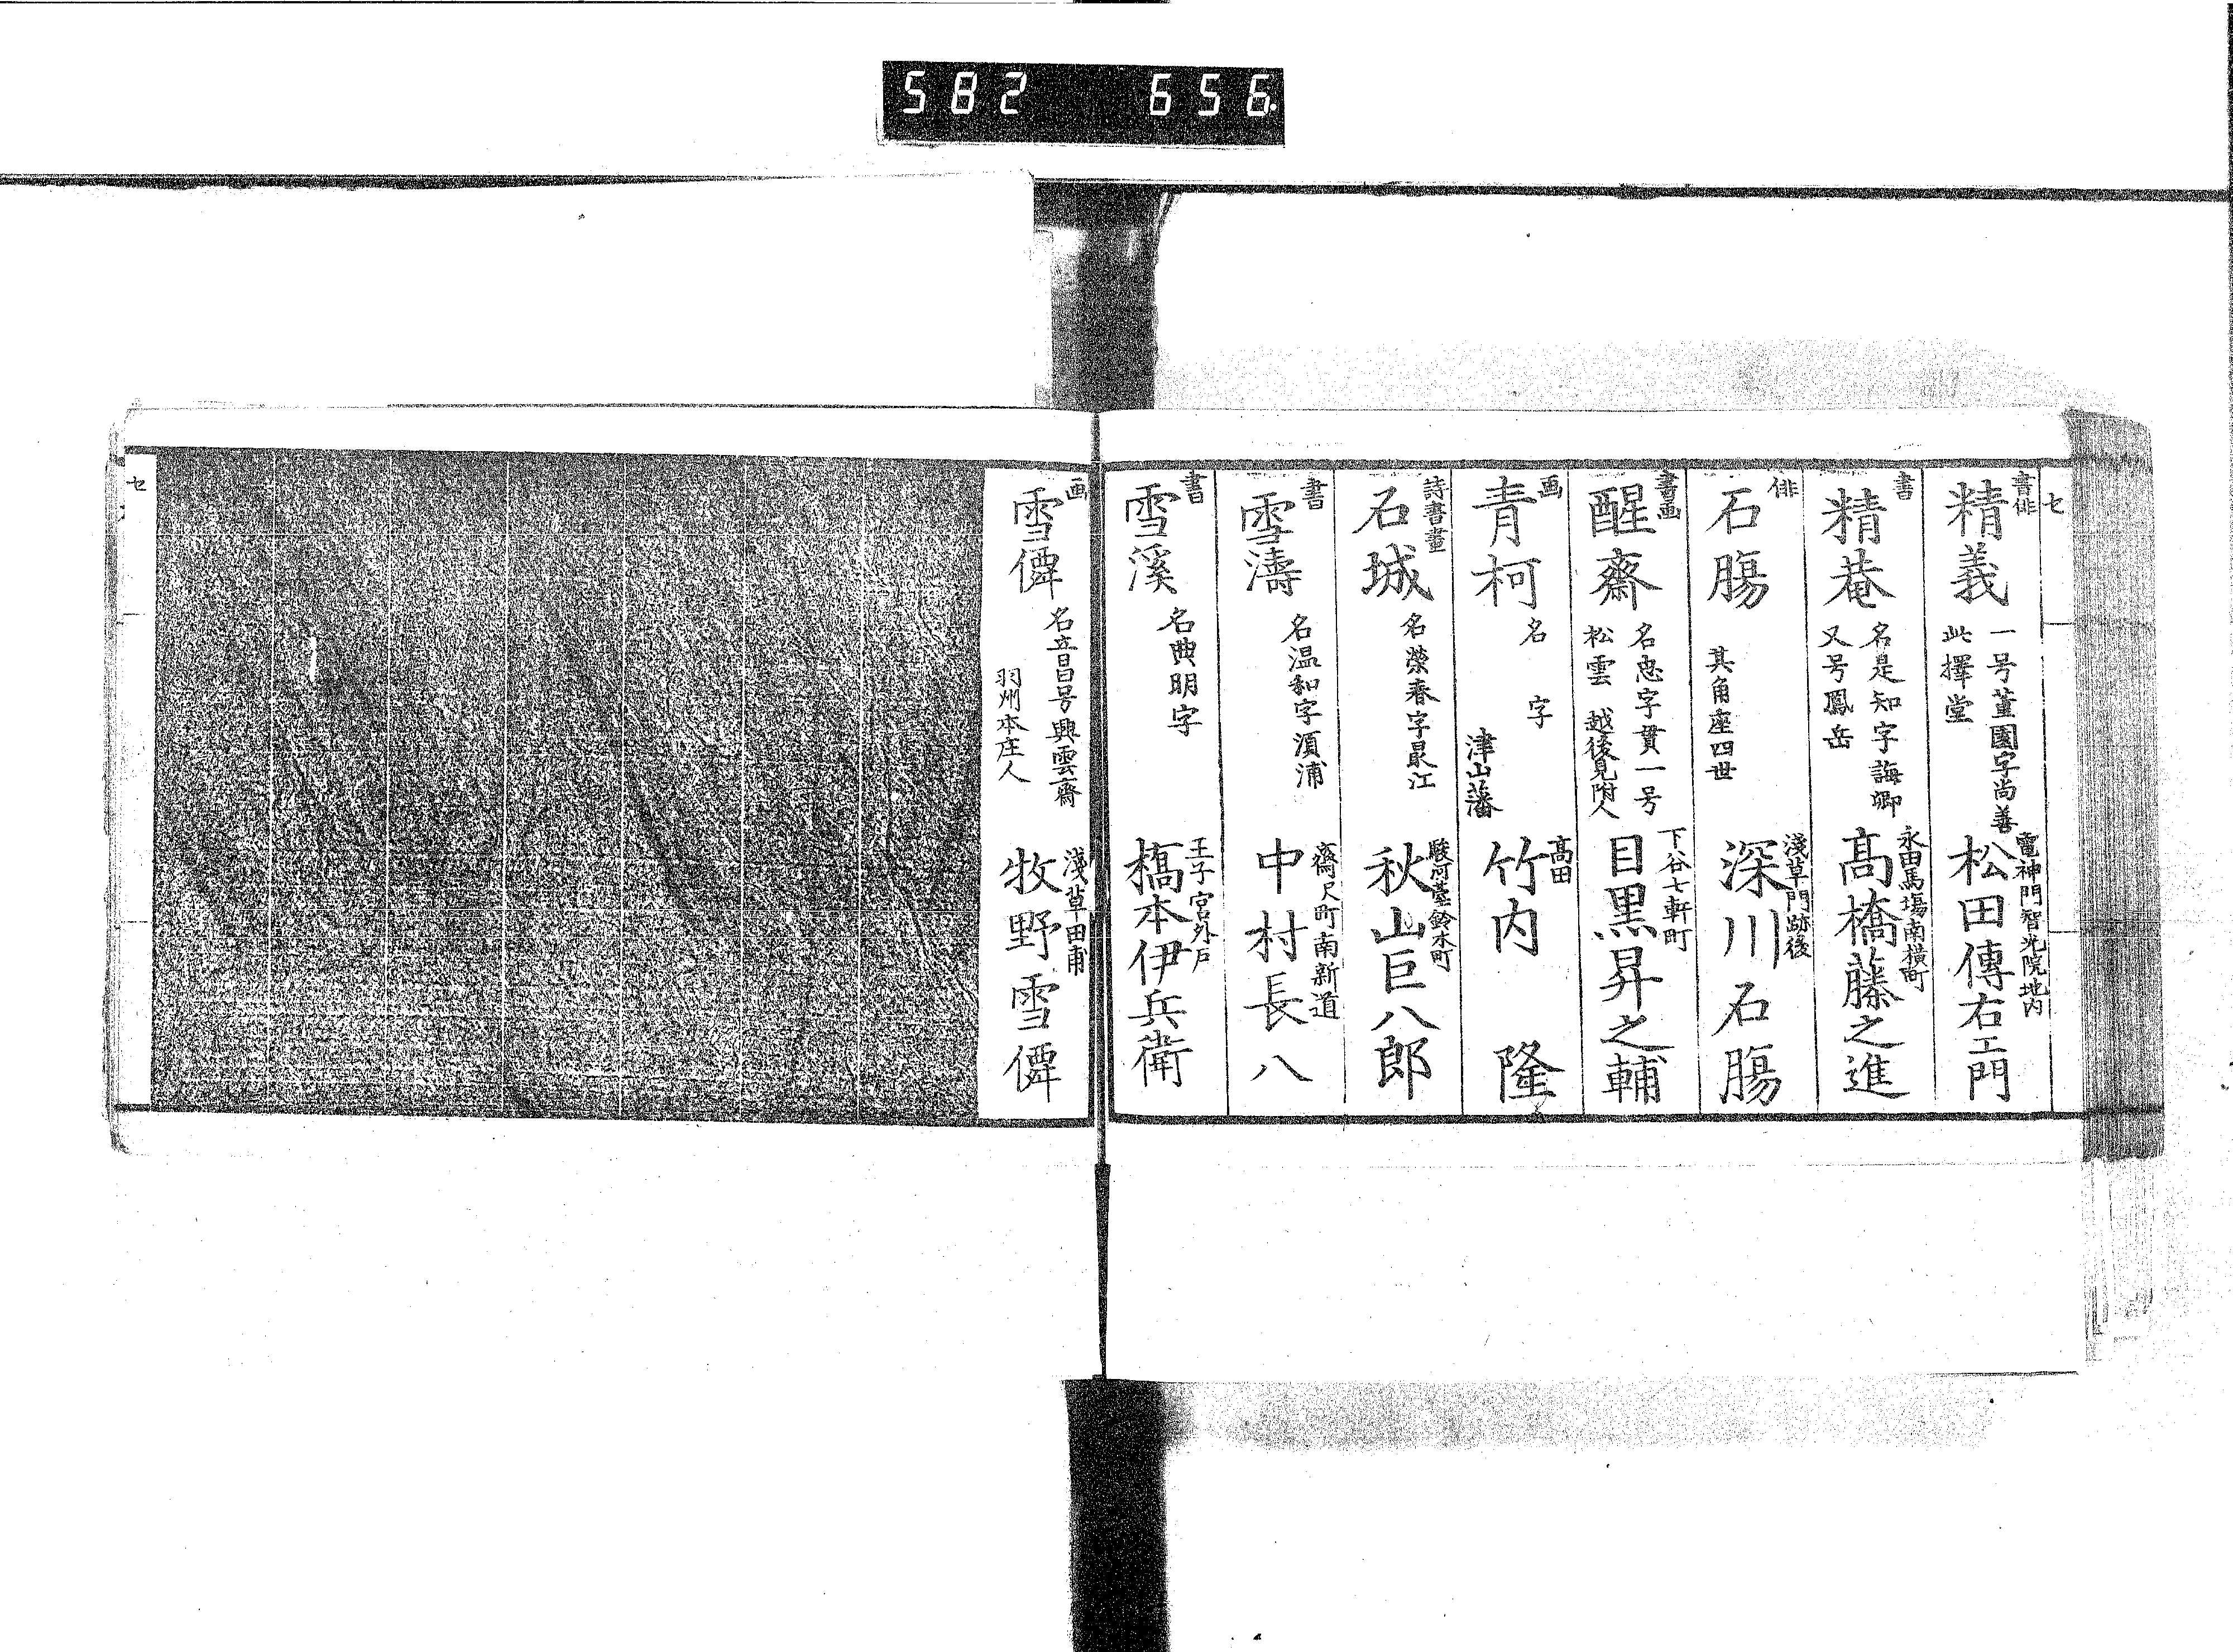 582 656.
セ
書俳
精義
一号菫園字尚善
此擇堂
竜神門智光院地内
松田傳右エ門
書
精菴
名是知字誨卿
又号鳳岳
永田馬塲南横町
髙橋藤之進
俳
石膓
其角座四世
淺草門跡後
深川石膓
書画
醒齋
名忠字貫一号
松雲 越後見附人
下谷七軒町
目黒昇之輔
画
青柯
名 字
津山藩
髙田
竹内 隆
詩書畫
石城
名榮春字最江
駿河臺鈴木町
秋山巨八郎
書
雪濤
名温和字湏浦
齋尺町南新道
中村長八
書
雪溪
名典明字
王子宮外戸
槗本伊兵衛
画
雪僊
名音昌号興雲齋
羽州本庄人
淺草田甫
牧野雪僊
セ